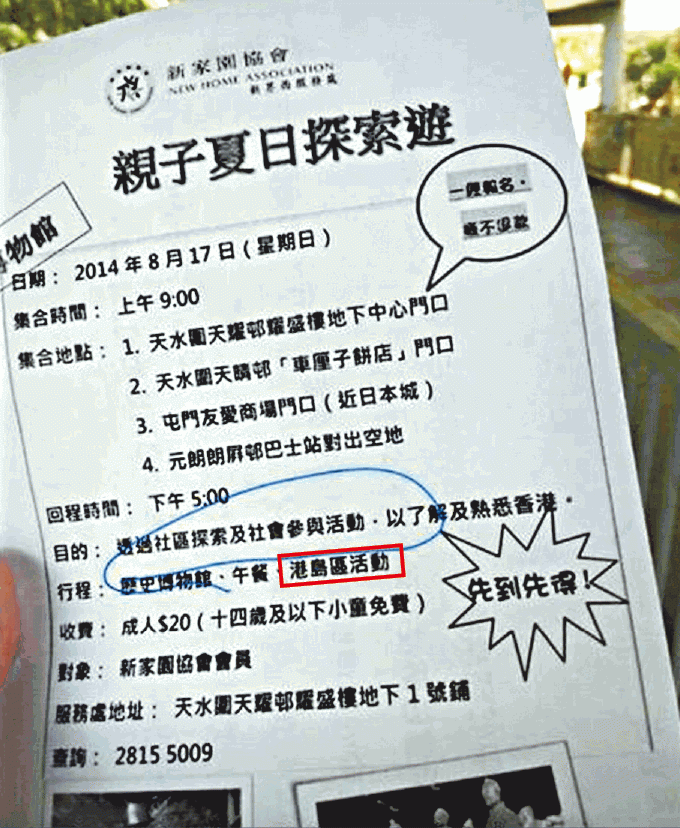 新家園協會
NEW HOME ASSOCIATION
新界西服務處
親子夏日探索遊
一經報名,
概不退款
物館
日期： 2014 年 8 月 17 日（星期日）
集合時間： 上午 9:00
集合地點： 1. 天水圍天耀邨耀盛樓地下中心門口
2. 天水圍天晴邨「車厘子餅店」門口
3. 屯門友愛商場門口（近日本城）
4. 元朗朗屏邨巴士站對出空地
回程時間： 下午 5:00
目的： 透過社區探索及社會參與活動，以了解及熟悉香港。
行程： 歷史博物館、午餐、港島區活動
先到先得!
收費： 成人$20（十四歲及以下小童免費）
對象： 新家園協會會員
服務處地址： 天水圍天耀邨耀盛樓地下 1 號鋪
查詢： 2815 5009